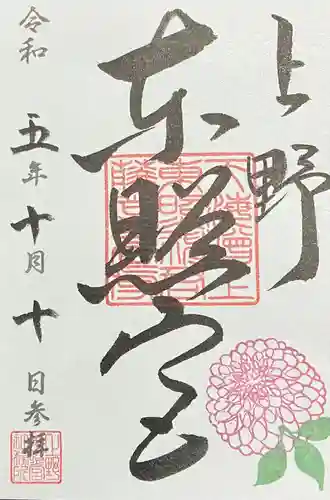 上野
東照宮
令和五年十月十日参拝